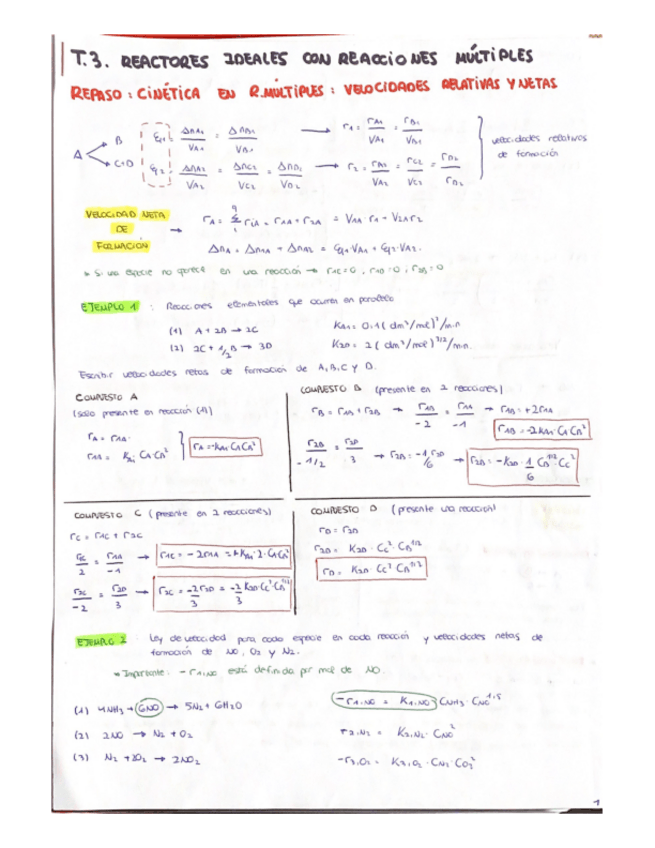 T.3. REACTORES IDEALES CON REACCIONES MÚLTIPLES
REPASO: CINÉTICA EN R.MÚLTIPLES: VELOCIDADES RELATIVAS Y NETAS
A B C+D
velocidades relativas de formación
VELOCIDAD NETA DE FORMACIÓN
ΔnA = ΔnA1 + ΔnA2 = ξ1·VA1 + ξ2·VA2.
* Si una especie no aparece en una reacción → r1C=0, r1D=0, r2B=0
EJEMPLO 1: Reacciones elementales que ocurren en paralelo
(1) A + 2B → 2C KA1= 0.1 (dm³/mol)²/min
(2) 2C + 1/2 B → 3D K2D = 2 (dm³/mol)^3/2/min.
Escribir velocidades netas de formación de A, B, C y D.
COMPUESTO A
(solo presente en reacción (1))
rA = r1A.
COMPUESTO B (presente en 2 reacciones)
rB = r1B + r2B → r1B/-2 = r1A/-1 → r1B = +2r1A
r1B = -2K1A·CA·CB²
r2B/-1/2 = r2D/3 → r2B = -1/6 r2D →
COMPUESTO C (presente en 2 reacciones)
rC = r1C + r2C
r2C/-2 = r2D/3 →
COMPUESTO D (presente una reacción)
rD = r2D
r2D = K2D·CC²·CB^1/2
rD = K2D·CC²·CB^1/2
EJEMPLO 2: Ley de velocidad para cada especie en cada reacción y velocidades netas de
formación de NO, O2 y N2.
* Importante: -r1,NO está definida por mol de NO.
(1) 4NH3 + 6NO → 5N2 + 6H2O -r1,NO = K1,NO·CNH3·CNO^1.5
(2) 2NO → N2 + O2 r2,N2 = K2,N2·CNO²
(3) N2 + 2O2 → 2NO2 -r3,O2 = K3,O2·CN2·CO2²
1